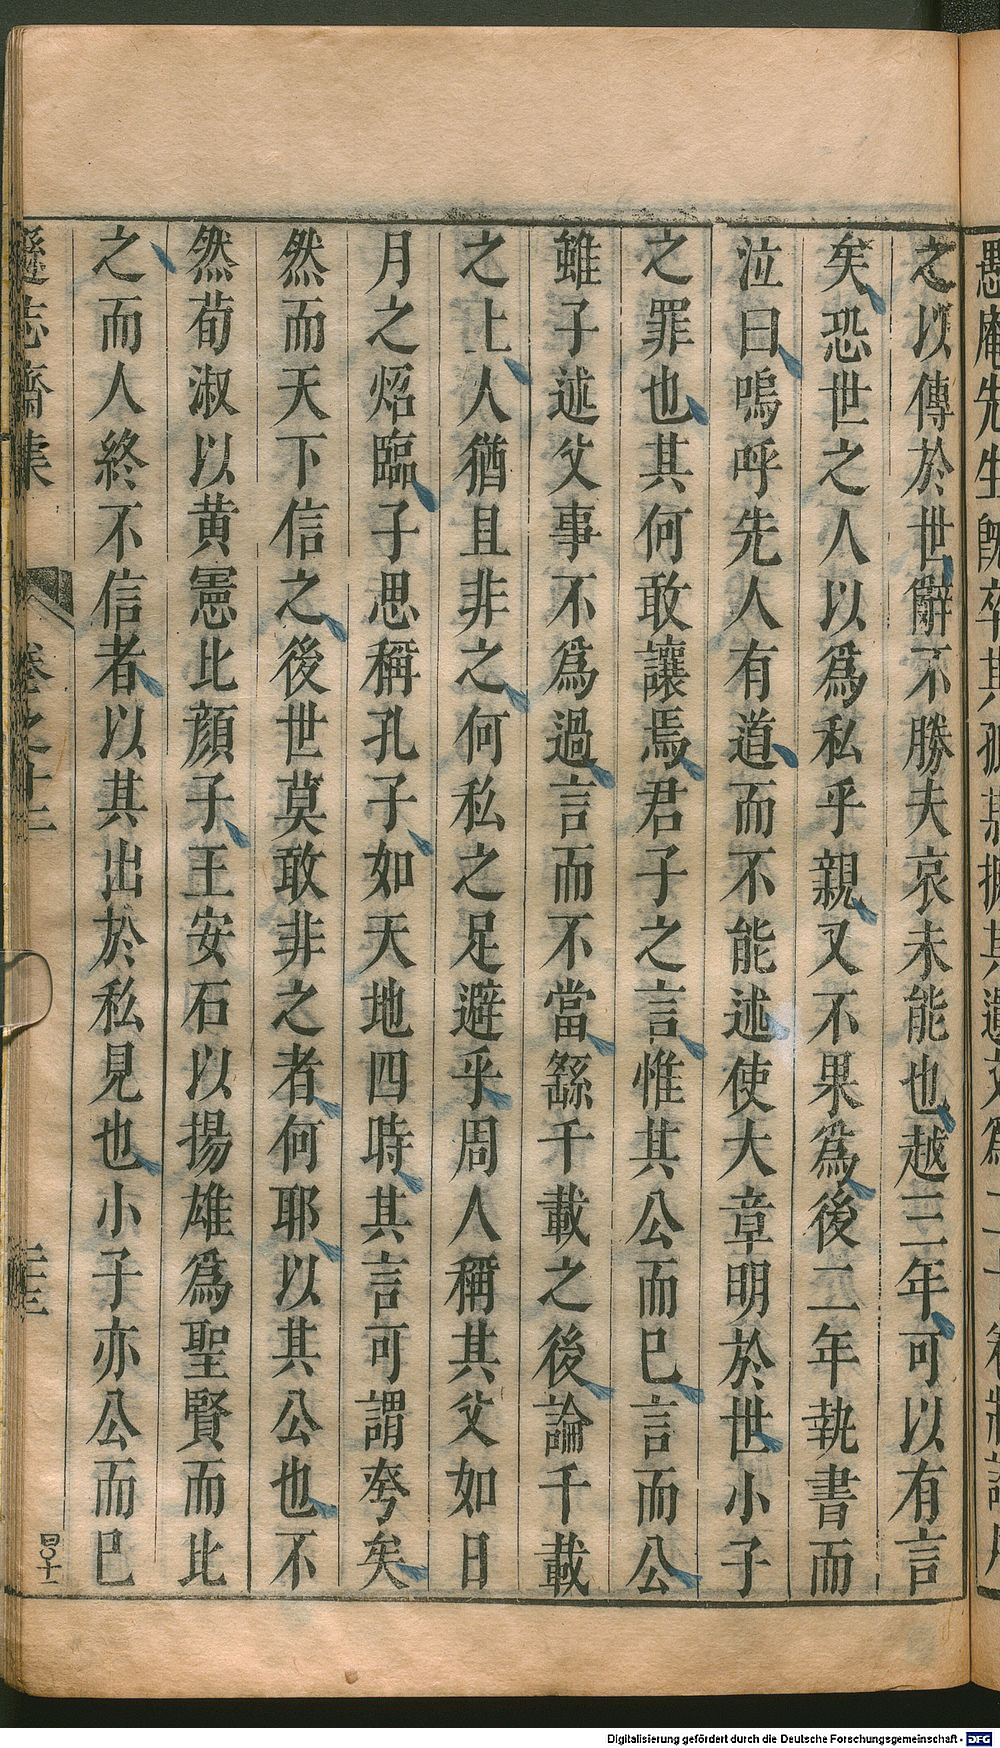 之以傳於世辭不勝夫哀未能也越三年可以有言
矣恐世之人以爲私乎親又不果爲後二年執書而
泣曰嗚呼先人有道而不能述使大章明於世小子
之罪也其何敢讓焉君子之言惟其公而已言而公
雖子述父事不爲過言而不當繇千載之後論千載
之上人猶且非之何私之足避乎周人稱其父如日
月之炤臨子思稱孔子如天地四時其言可謂夸矣
然而天下信之後世莫敢非之者何耶以其公也不
然荀淑以黄憲比顔子王安石以揚雄爲聖賢而比
之而人終不信者以其出於私見也小子亦公而已
遜志齋集
卷之十二
Digitalisierung gefördert durch die Deutsche Forschungsgemeinschaft - DFG